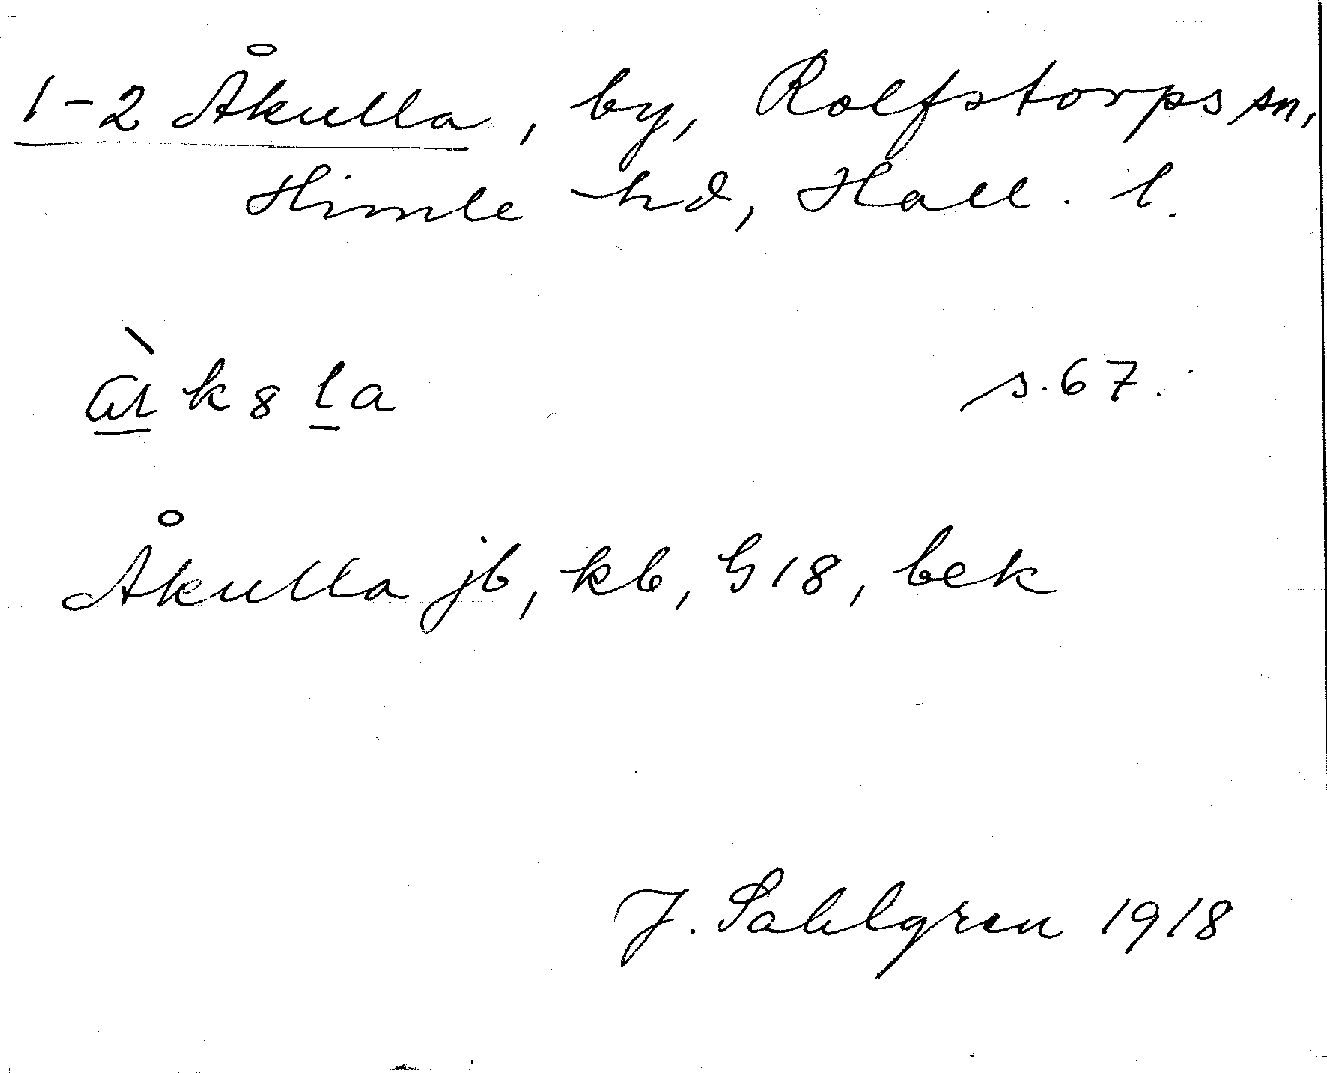 1-2 Åkulla, by, Rolfstorps sn,
Himle hd, Hall. l.
s. 67.
Åkulla jb, kb, G18, bek
J. Sahlgren 1918